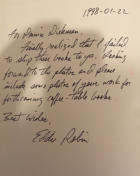 1998-01-22
To Donna Dickman
finally realized that I failed
to ship these books to you. Looking
forward to the photos and please
include some photos of your work for
forthcoming coffee-table books.
Best wishes,